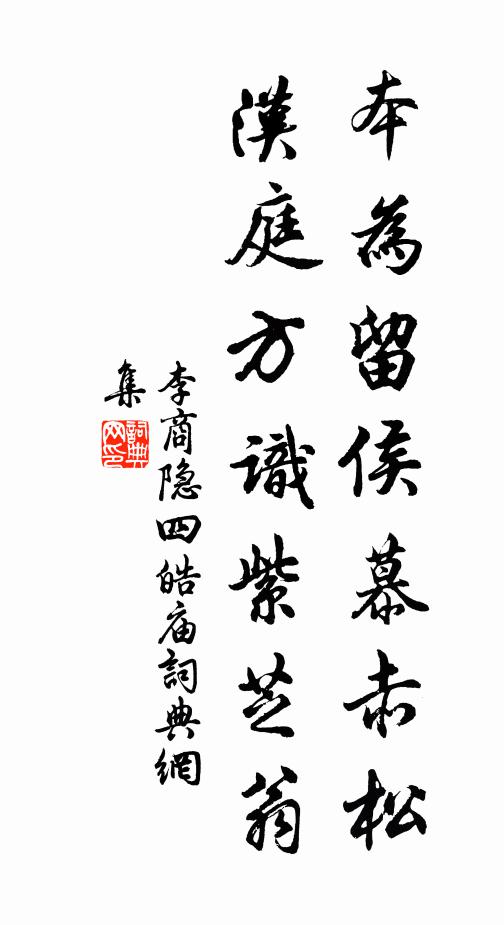 本為留侯慕赤松
漢庭方識紫芝翁
李商隐四皓庙詞典網
集
詞典
网印